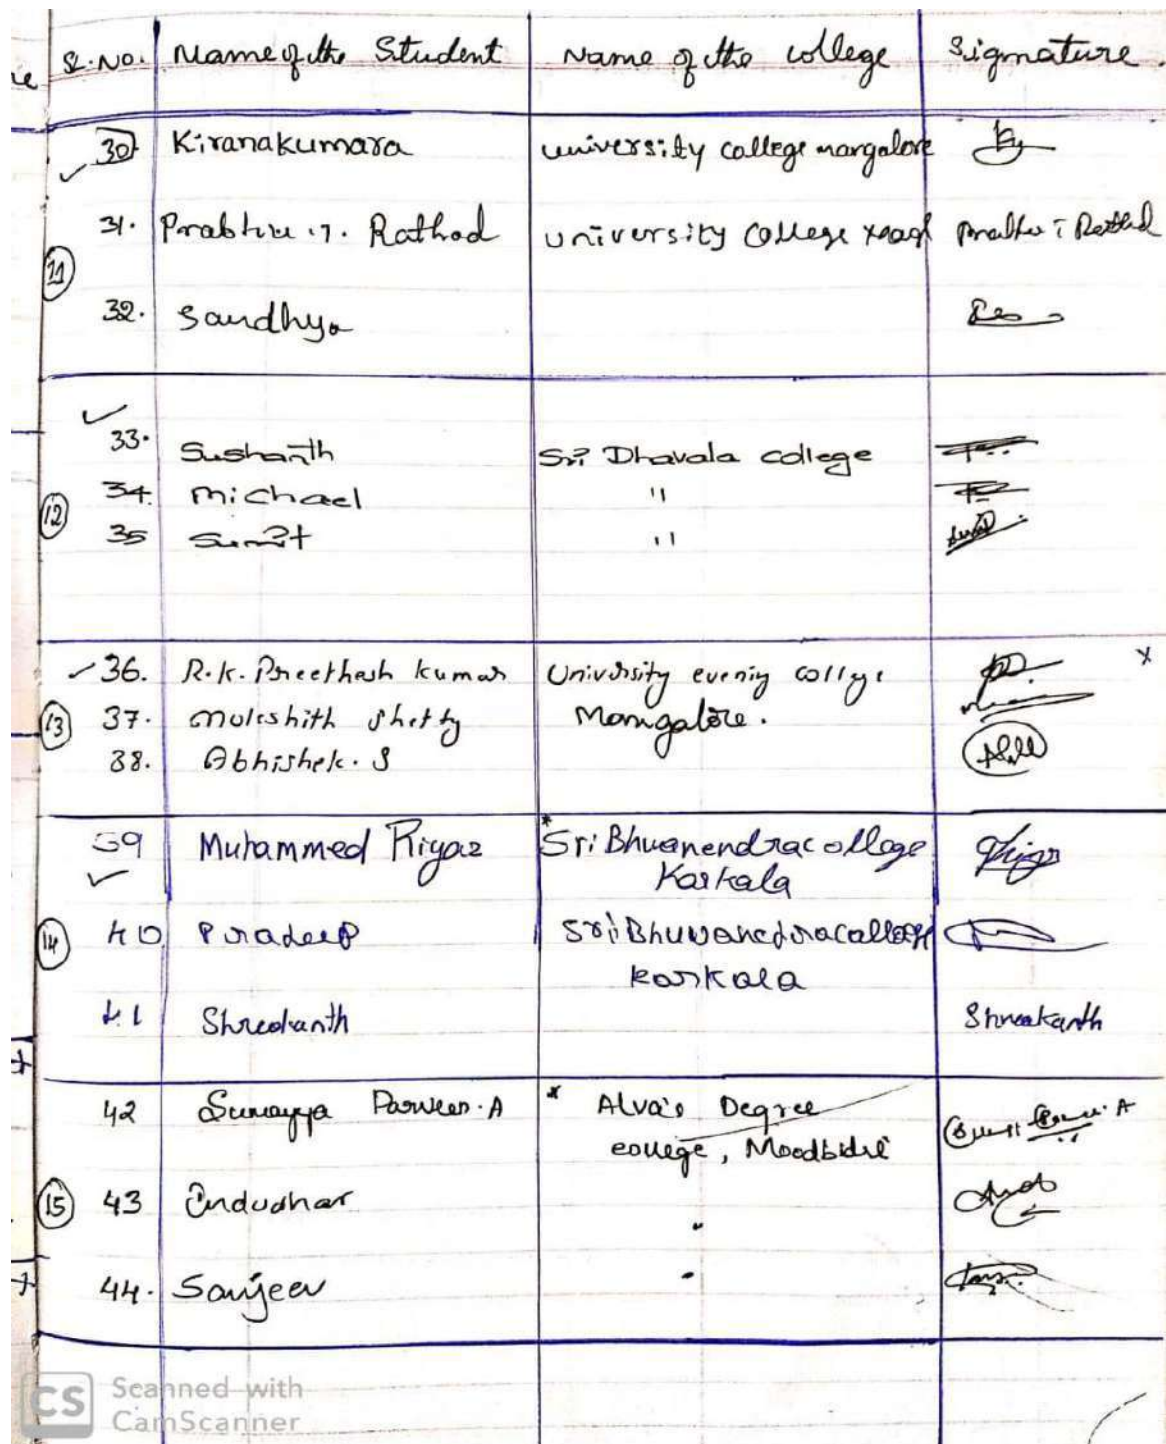 Sl.No. Name of the Student Name of the college Signature.
30 Kiranakumara university college mangalore
31. Rathod university college
11
32. Sandhya
33. Sushanth Sri Dhavala college
34. Michael "
12
35 Sumit "
36. R.K. Preethesh Kumar University evening college x
13 37. Shetty Mangalore.
38. Abhishek. S
39 Muhammed Riyaz *Sri Bhuvanendra college
Karkala
14 40 Pradeep Sri Bhuvanedra college
Karkala
41 Shreekanth Shreekanth
42 Sumayya Parveen.A * Alva's Degree
college, Moodbidri
15 43 Indudhar "
44. Sanjeev "
CS Scanned with
CamScanner